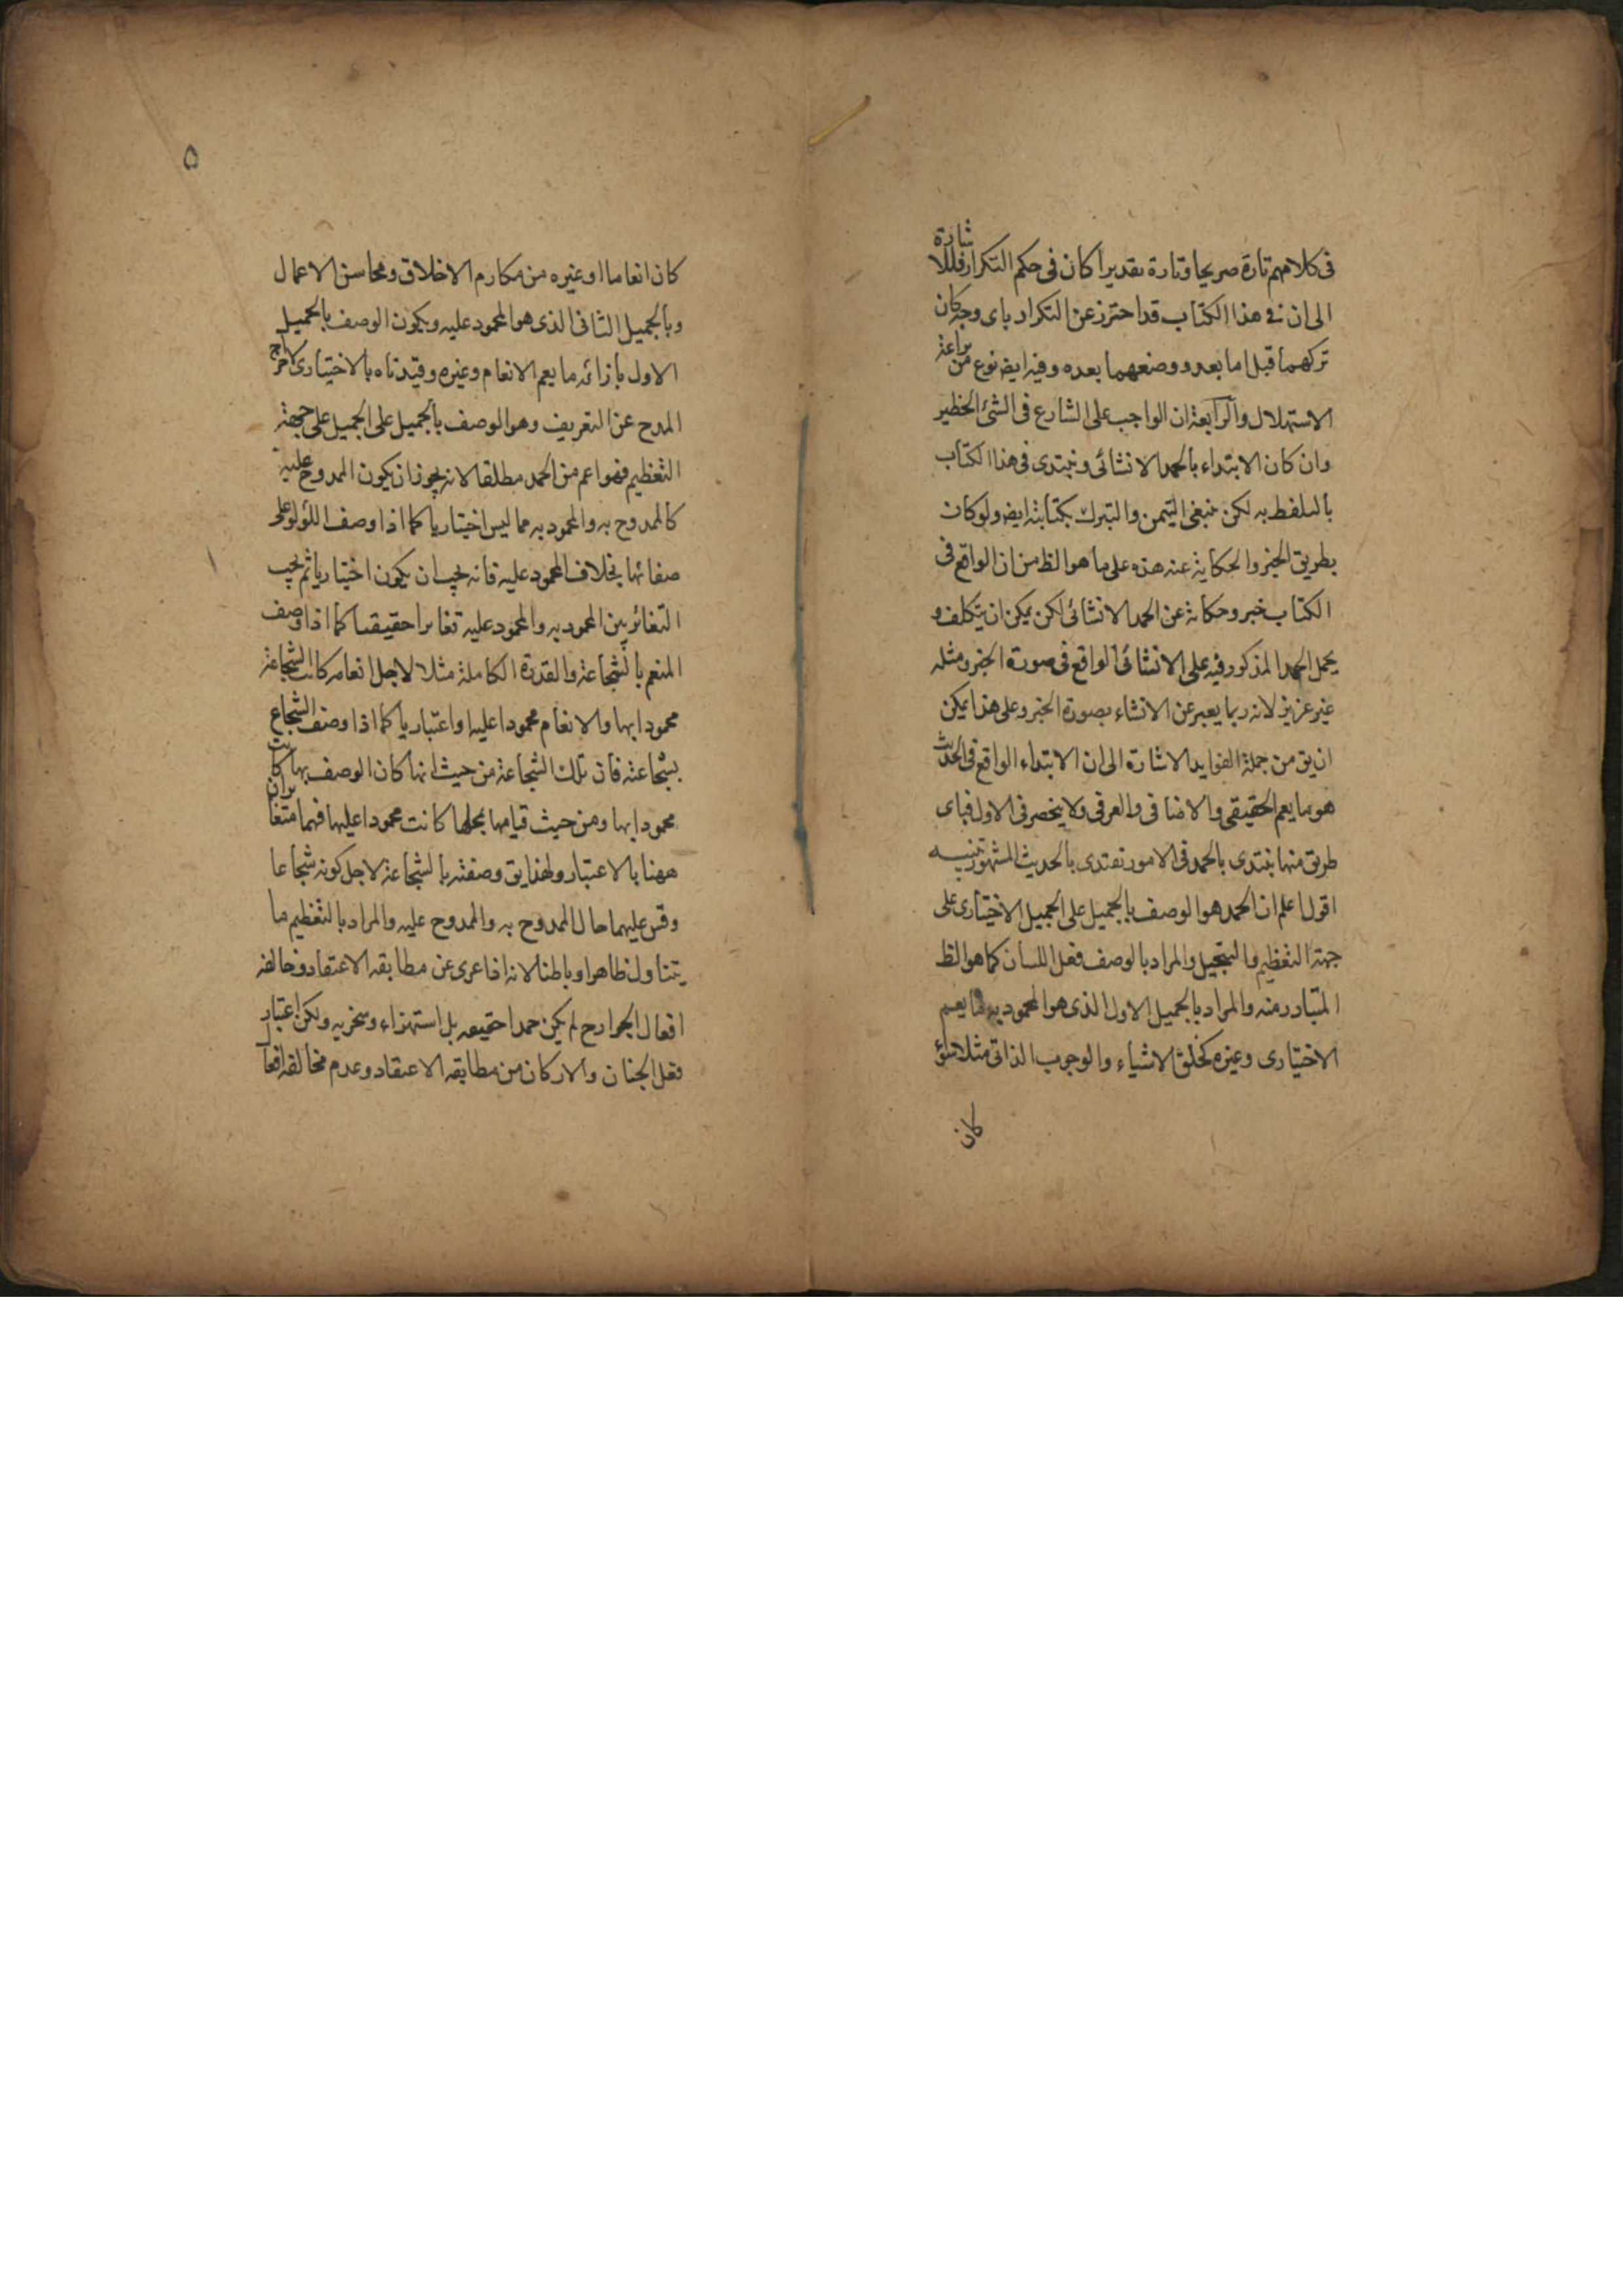 فى كلامهم تارة صريحا وتارة تقديرا كان فى حكم التكرار فللاشارة
الى ان فى هذا الكتاب قد احترز عن التكرار باى وجه كان
تركهما قبل اما بعد ووضعهما بعده وفيه ايض نوع من براعة
الاستهلال والرابعة ان الواجب على الشارع فى الشئ الخطير
وان كان الابتداء بالحمد الانشائى ونبتدى فى هذا الكتاب
بالتلفظ به لكن ينبغى التيمن والتبرك بكتابته ايض ولو كان
بطريق الخبر والحكاية عنه هذه على ما هو الظ من ان الواقع فى
الكتاب خبر وحكاية عن الحمد الانشائى لكن يمكن ان يتكلف و
يحمل الحمد المذكور فيه على الانشائى الواقع فى صورة الخبر ومثله
غير عزيز لانه ربما يعبر عن الانشاء بصورة الخبر وعلى هذا يمكن
ان يق من جملة الفوايد الاشارة الى ان الابتداء الواقع فى الحديث
هو ما يعم الحقيقى والاضافى والعرفى ولا ينحصر فى الاول فباى
طريق منها نبتدى بالحمد فى الامور نقتدى بالحديث المشهور تنبيه
اقول اعلم ان الحمد هو الوصف بالجميل على الجميل الاختيارى على
جهة التعظيم والتبجيل والمراد بالوصف فعل اللسان كما هو الظ
المتبادر منه والمراد بالجميل الاول الذى هو المحمود به ما يعم
الاختيارى وغيره كخلق الاشياء والوجوب الذاتى مثلا سواء
كان
٥
كان انعاما او غيره من مكارم الاخلاق ومحاسن الاعمال
وبالجميل الثانى الذى هو المحمود عليه ويكون الوصف بالجميل
الاول بازائه ما يعم الانعام وغيره وقيدناه بالاختيارى لاخراج
المدح عن التعريف وهو الوصف بالجميل على الجميل على جهة
التعظيم فهو اعم من الحمد مطلقا لانه يجوز ان يكون الممدوح عليه
كالممدوح به والمحمود به مما ليس اختياريا كما اذا وصف اللؤلؤ على
صفائها بخلاف المحمود عليه فانه يجب ان يكون اختياريا ثم يجب
التغائر بين المحمود به والمحمود عليه تغايرا حقيقيا كما اذا وصف
المنعم بالشجاعة والقدرة الكاملة مثلا لاجل انعامه كانت الشجاعة
محمودا بها والانعام محمودا عليه او اعتباريا كما اذا وصف الشجاع
بشجاعته فان تلك الشجاعة من حيث انها كان الوصف بها كانت
محمودا بها ومن حيث قيامها بمحلها كانت محمودا عليها فهما متغايران
ههنا بالاعتبار ولهذا يق وصفته بالشجاعة لاجل كونه شجاعا
وقس عليهما حال الممدوح به والممدوح عليه والمراد بالتعظيم ما
يتناول ظاهرا وباطنا لانه اذا عرى عن مطابقه الاعتقاد وخالفه
افعال الجوارح لم يكن حمدا حقيقه بل استهزاء وسخريه ولكن اعتبار
فعل الجنان والاركان من مطابقه الاعتقاد وعدم مخالفه افعال